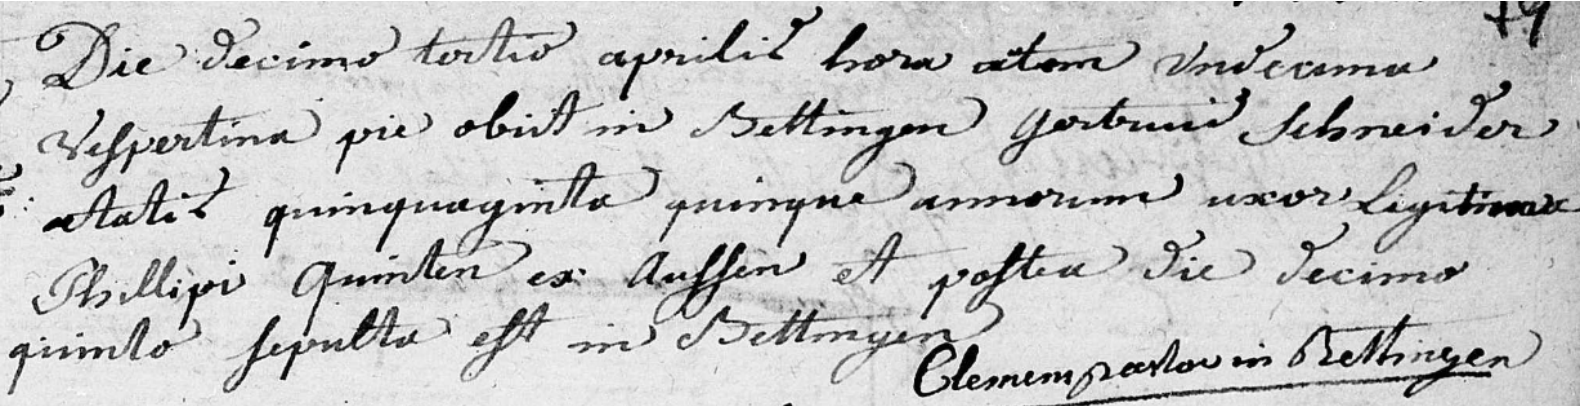 79
Die decimo tertio aprilis hora atem undecima
vespertina pie obiit in Bettingen Gertrud Schneider
ætatis quinquaginta quinque annorum uxor legitima
Phillipi Quinten ex Aussen et postea die decimo
quinto sepulta est in Bettingen
Clemens pastor in Bettingen